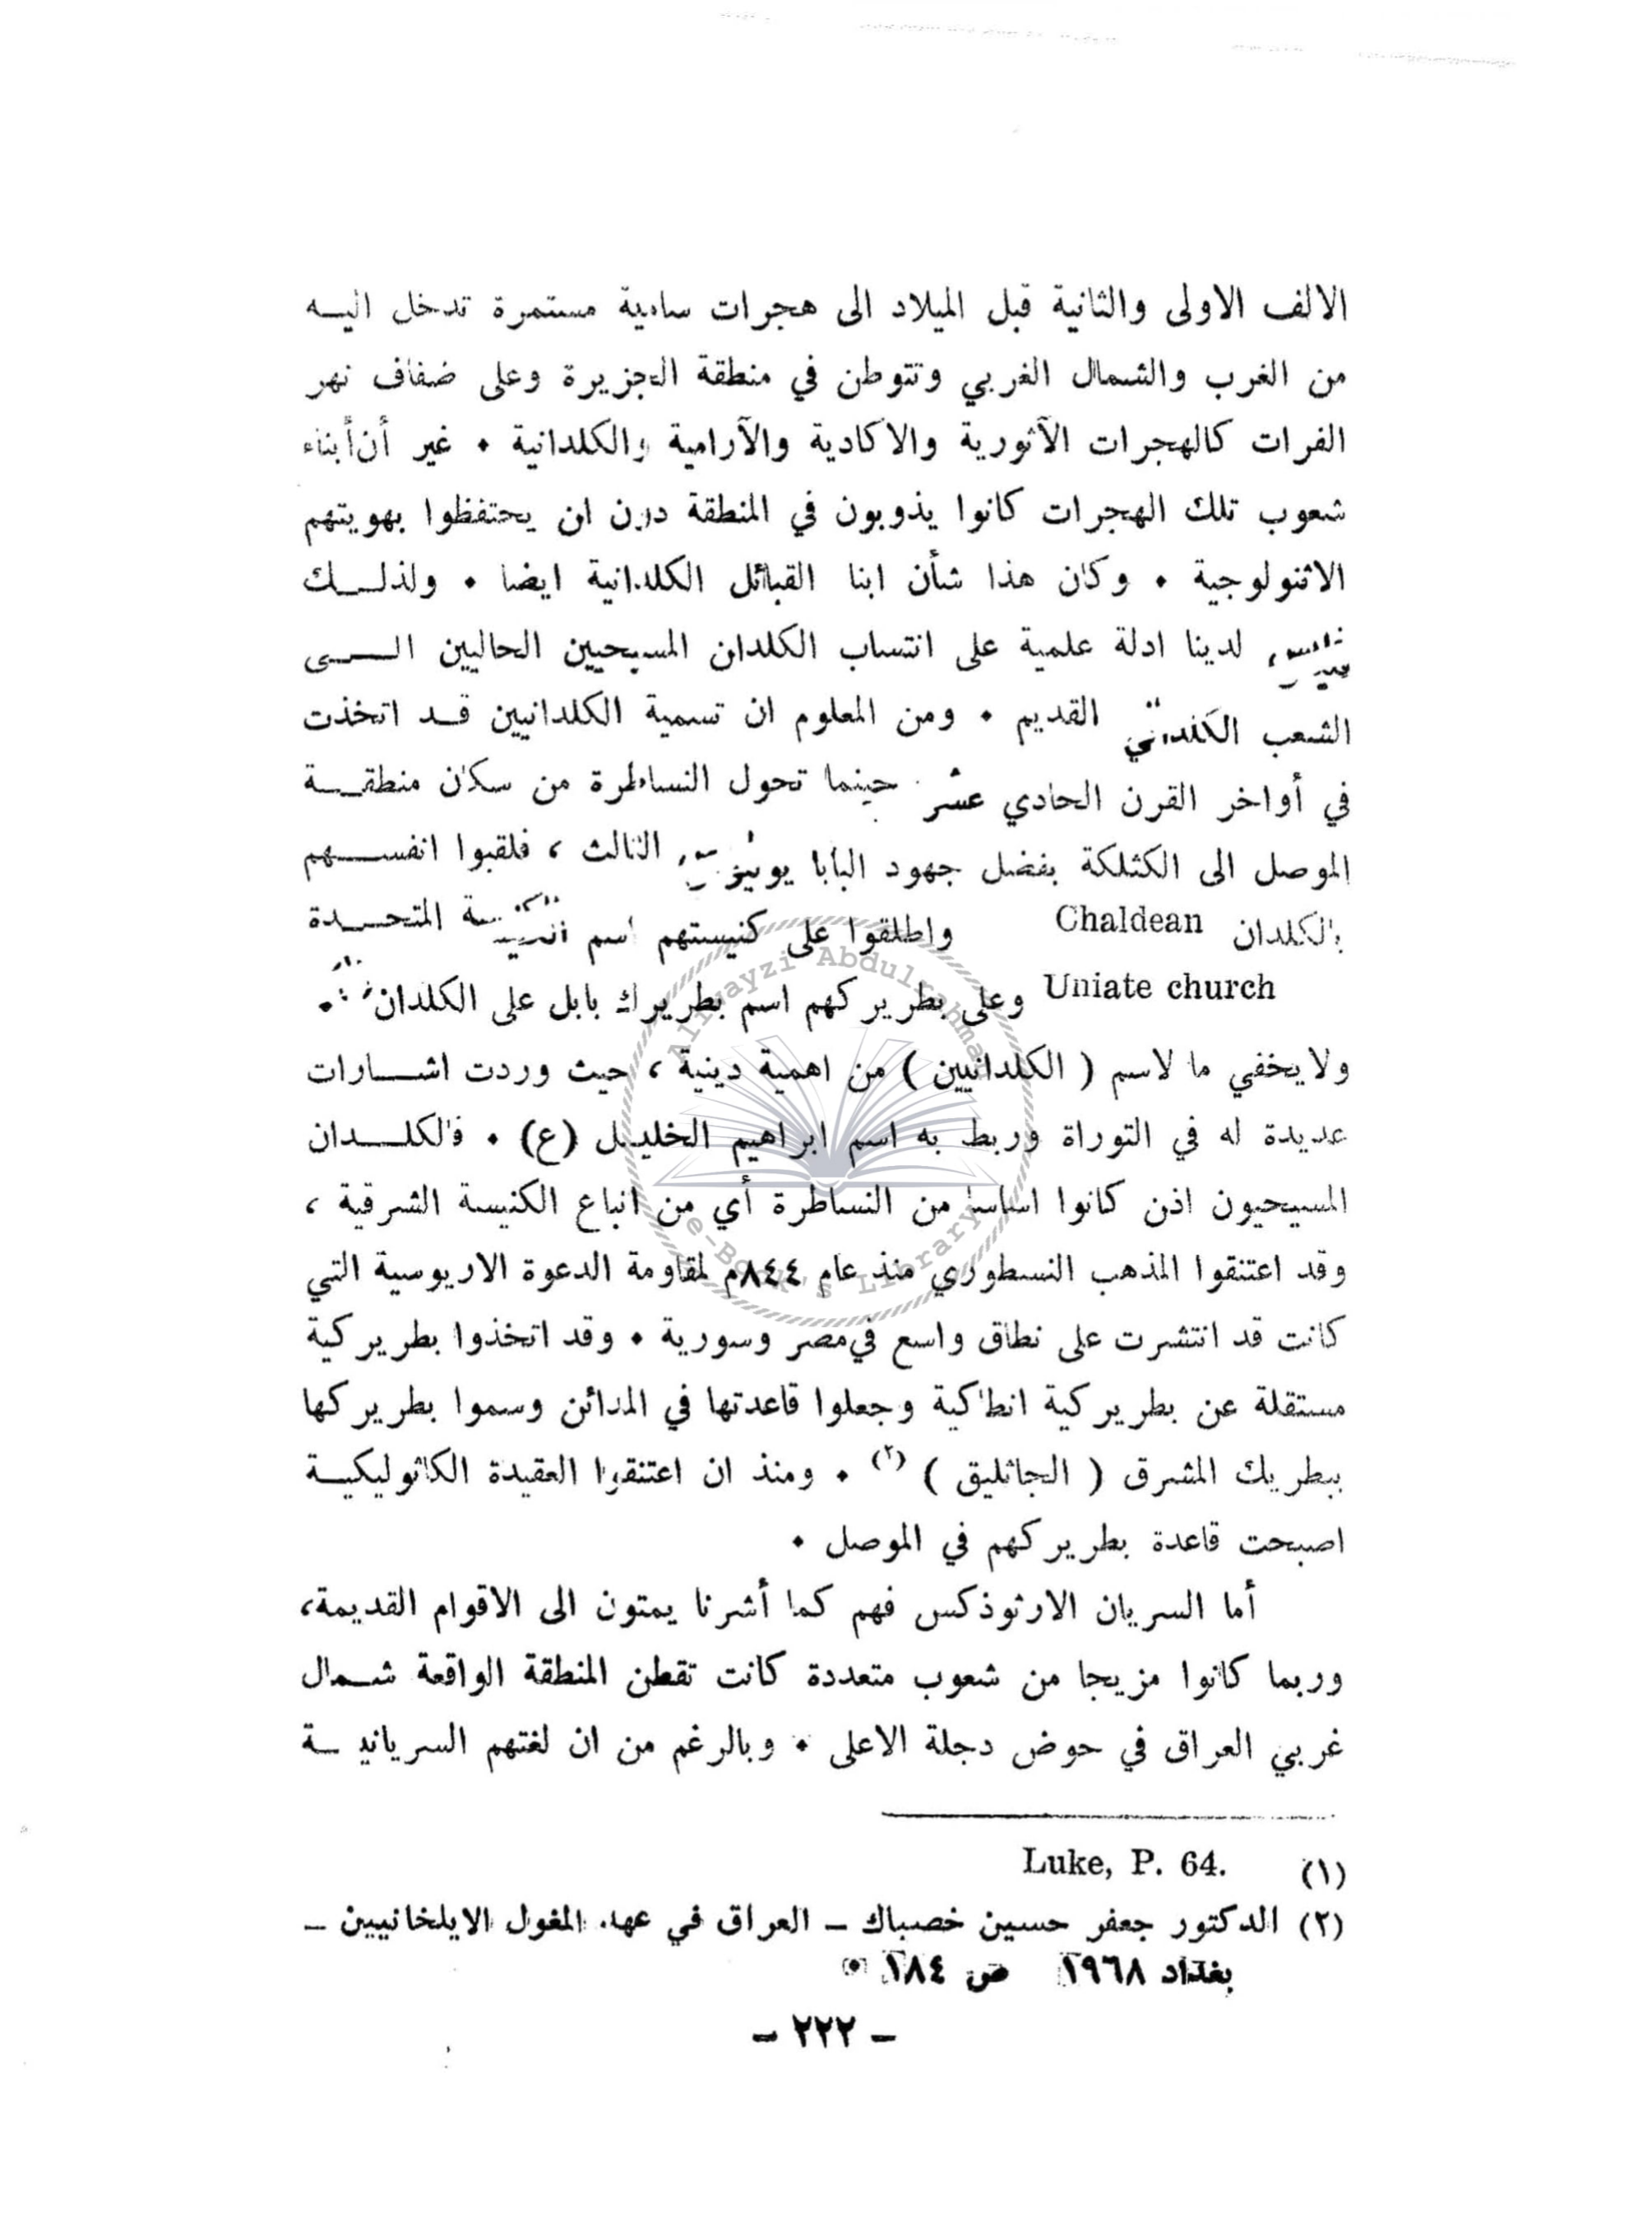 الالف الاولى والثانية قبل الميلاد الى هجرات سامية مستمرة تدخل اليـه
من الغرب والشمال الغربي وتتوطن في منطقة الجزيرة وعلى ضفاف نهر
الفرات كالهجرات الآثورية والاكادية والآرامية والكلدانية • غير أن أبناء
شعوب تلك الهجرات كانوا يذوبون في المنطقة دون ان يحتفظوا بهويتهم
الاثنولوجية • وكان هذا شأن ابنا القبائل الكلدانية ايضا • ولذلـــك
لدينا ادلة علمية على انتساب الكلدان المسيحيين الحاليين الـــــى
الشعب الكلداني القديم • ومن المعلوم ان تسمية الكلدانيين قـد اتخذت
في أواخر القرن الحادي عشر حينما تحول النساطرة من سكان منطقـــة
الموصل الى الكثلكة بفضل جهود البابا الثالث ، فلقبوا انفســـهم
بالكلدان Chaldean واطلقوا على كنيستهم اسم الكنيسة المتحـــدة
Uniate church وعلى بطريركهم اسم بطريرك بابل على الكلدان •
ولا يخفي ما لاسم ( الكلدانيين ) من اهمية دينية ، حيث وردت اشـــارات
عديدة له في التوراة وربط به اسم ابراهيم الخليـل (ع) • فالكلـــدان
المسيحيون اذن كانوا اساسا من النساطرة أي من اتباع الكنيسة الشرقية ،
وقد اعتنقوا المذهب النسطوري منذ عام ٨٤٤م لمقاومة الدعوة الاريوسية التي
كانت قد انتشرت على نطاق واسع في مصر وسورية • وقد اتخذوا بطريركية
مستقلة عن بطريركية انطاكية وجعلوا قاعدتها في المدائن وسموا بطريركها
ببطريك المشرق ( الجاثليق ) (٢) • ومنذ ان اعتنقوا العقيدة الكاثوليكيـــة
اصبحت قاعدة بطريركهم في الموصل •
أما السريان الارثوذكس فهم كما أشرنا يمتون الى الاقوام القديمة،
وربما كانوا مزيجا من شعوب متعددة كانت تقطن المنطقة الواقعة شــمال
غربي العراق في حوض دجلة الاعلى • وبالرغم من ان لغتهم السريانيـــة
(١) Luke, P. 64.
(٢) الدكتور جعفر حسين خصباك – العراق في عهد المغول الايلخانيين –
بغداد ١٩٦٨ ص ١٨٤ •
– ٢٢٢ –
Abdulrahma
e-Book's Library